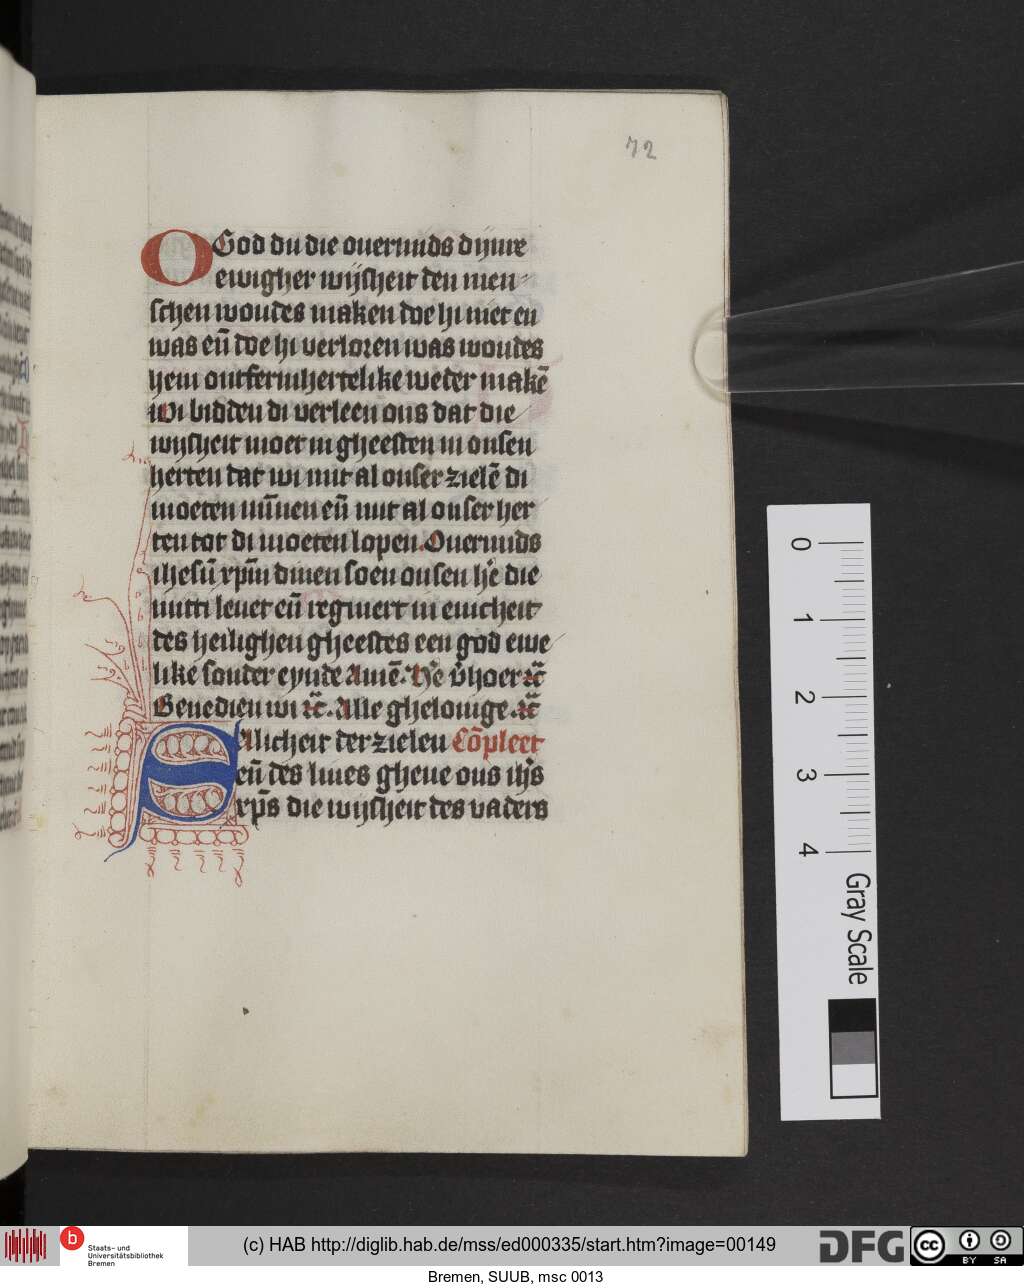 72
O God du die ouermids dijnre
ewigher wijsheit den men
schen woudes maken doe hi niet en
was eñ doe hi verloren was woudes
hem ontfermhertelike weder makē
wi bidden di verleen ons dat die
wijsheit moet in gheesten in onsen
herten dat wi mit al onser zielē di
moeten mīnen eñ mit al onser her
ten tot di moeten lopen. Ouermids
ihesū xpm̄ dinen soen onsen h̄e die
mitti leuet eñ regniert in enicheit
des heilighen gheestes een god ewe
like sonder eynde Amē. H̄e v̄hoer ⁊c̄
Benedien wi ⁊c̄. Alle ghelouige ⁊c̄
Salicheit der zielen Cōpleet
eñ des liues gheue ons ih̄s
xp̄s die wijsheit des vaders
0
1
2
3
4
Gray Scale
b
Staats- und
Universitätsbibliothek
Bremen
(c) HAB http://diglib.hab.de/mss/ed000335/start.htm?image=00149
DFG
cc
BY SA
Bremen, SUUB, msc 0013